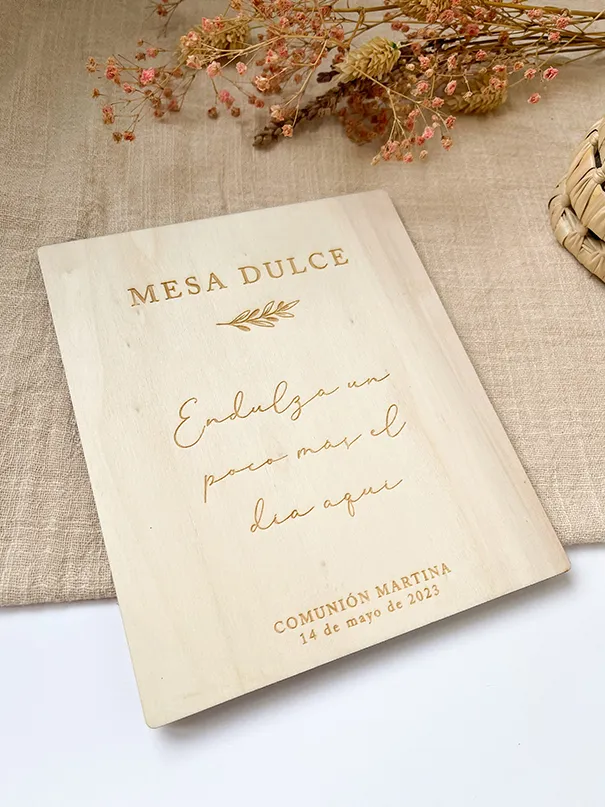 MESA DULCE
Endulza un
poco mas el
dia aqui
COMUNIÓN MARTINA
14 de mayo de 2023